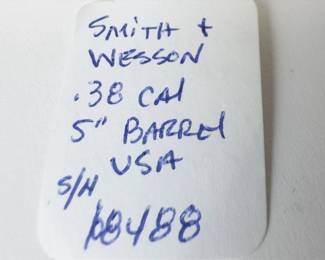 SMITH +
WESSON
.38 CAl
5" BARREl
USA
S/N
68488